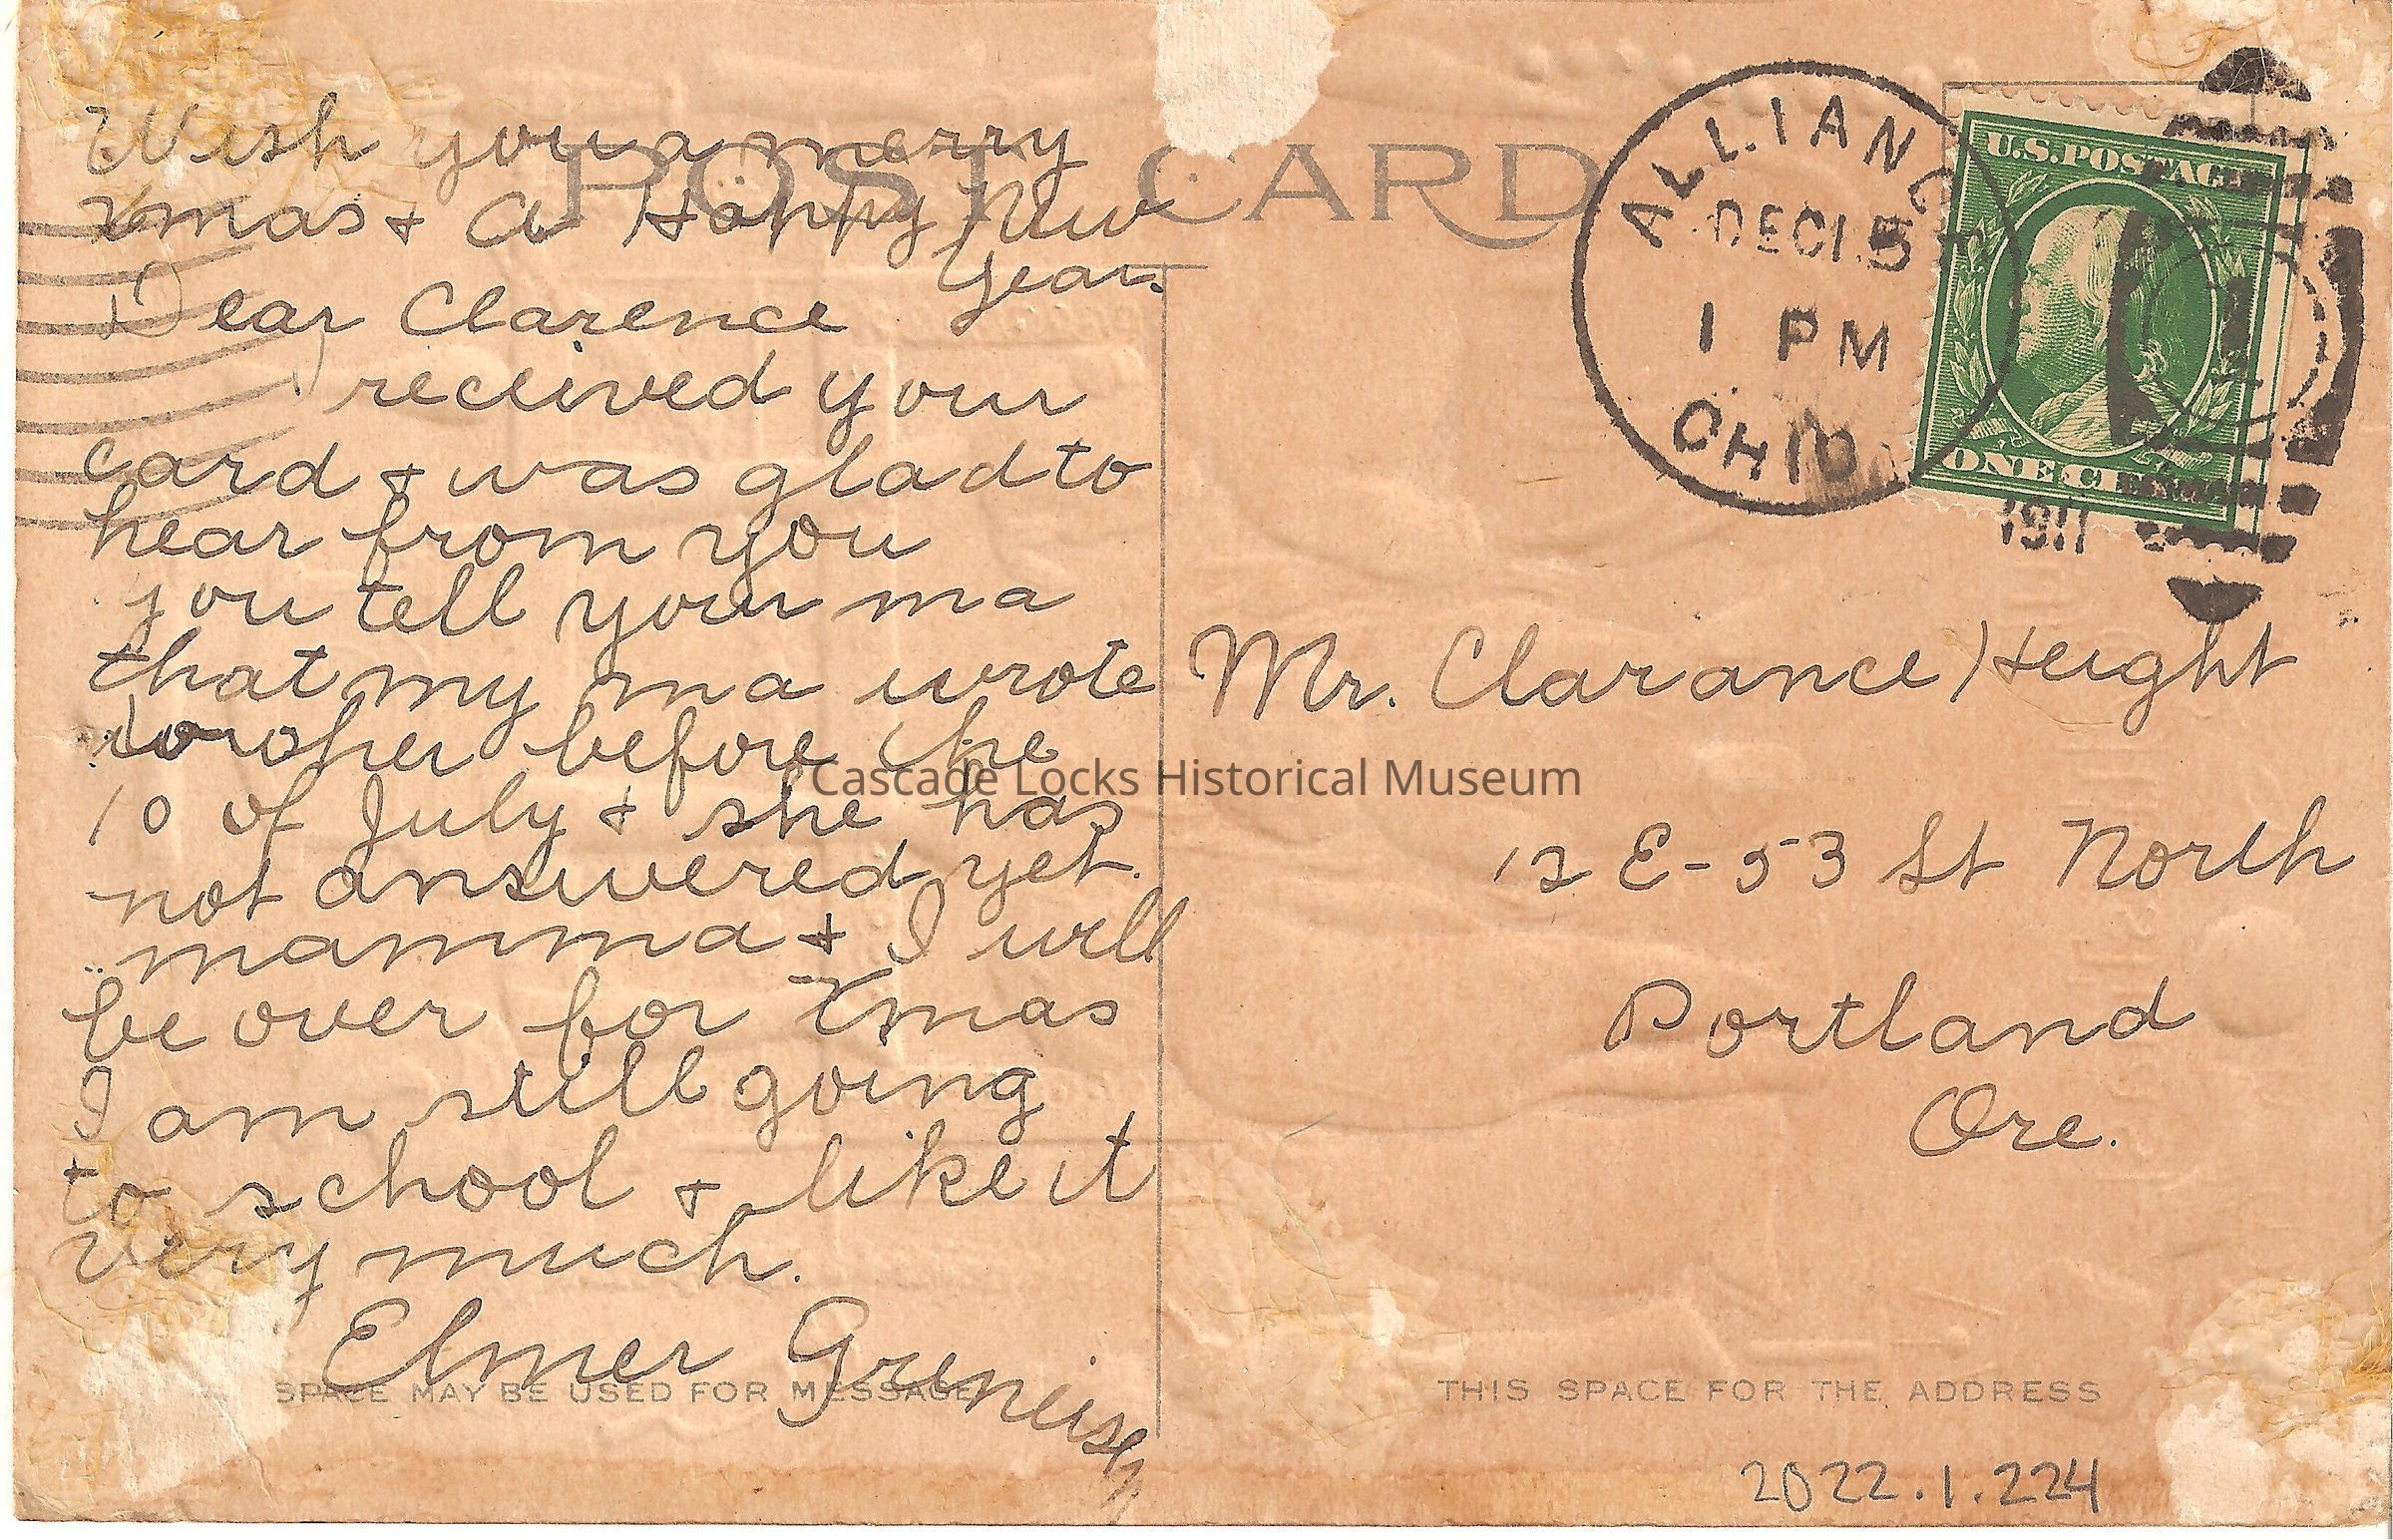 Wish you a merry
xmas + A Happy New
Year.
Dear Clarence
I received your
card + was glad to
hear from you
you tell your ma
that my ma wrote
to her before the
10 of July + she has
not answered yet.
mamma + I will
be over for Xmas
I am still going
to school + like it
very much.
Elmer
SPACE MAY BE USED FOR MESSAGE
POST CARD
ALLIANCE
DEC 15
1 PM
OHIO
1911
U.S. POSTAGE
ONE CENT
1
Mr. Clarance Height
12 E-53 St North
Portland
Ore.
THIS SPACE FOR THE ADDRESS
2022.1.224
Cascade Locks Historical Museum